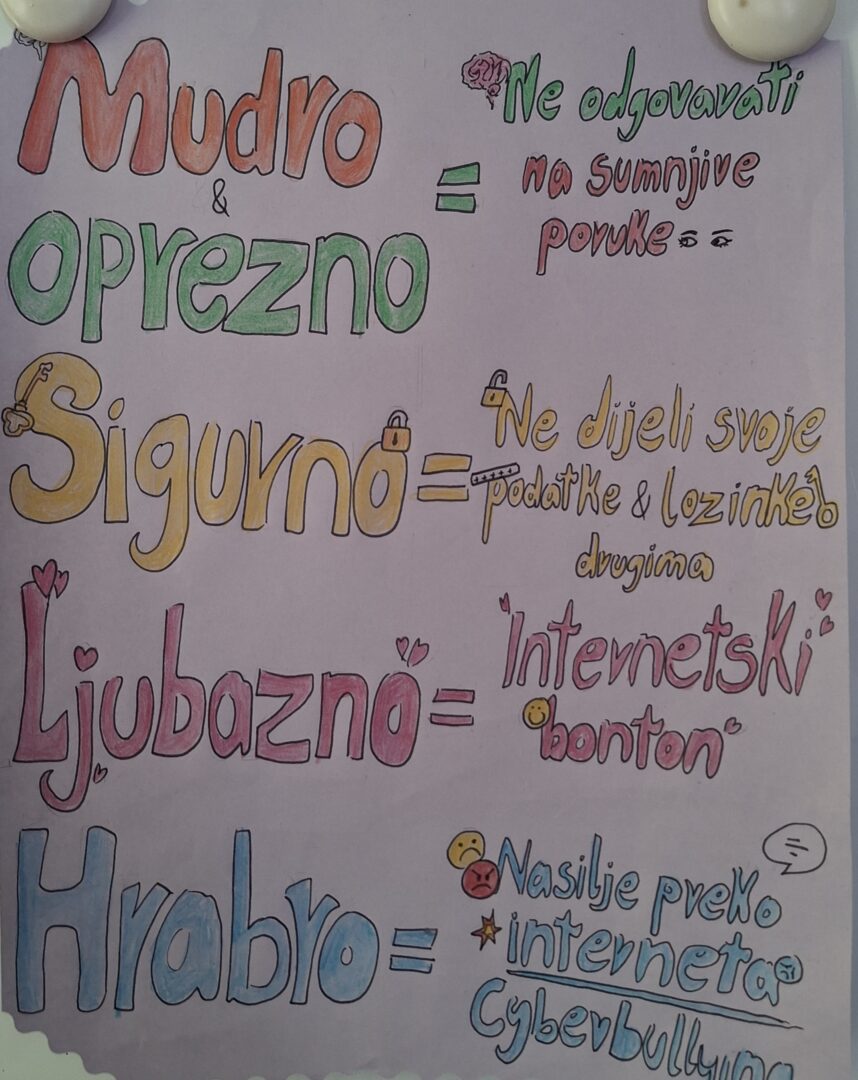 Mudro
&
oprezno
=
Ne odgovavati
na sumnjive
povuke
Sigurno
=
Ne dijeli svoje
podatke & lozinke
drugima
Ljubazno
=
Internetski
bonton
Hrabro
=
Nasilje preko
interneta
Cyberbullying